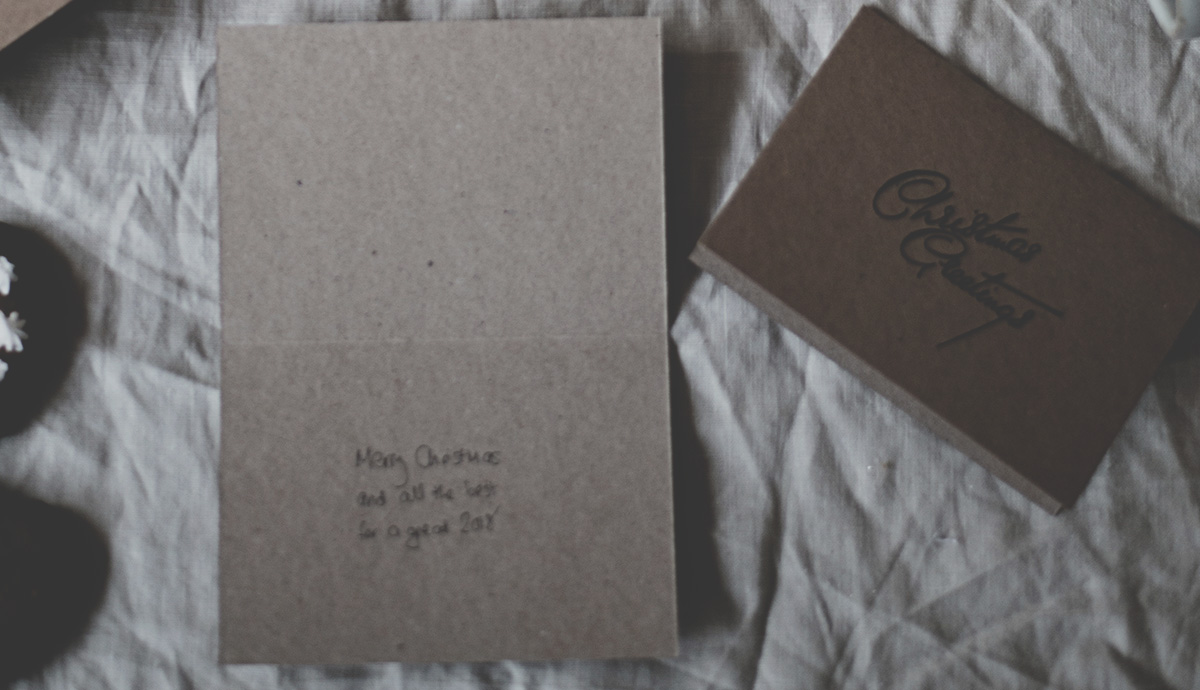 Merry Christmas
and all the best
for a great 2018
Christmas
Greetings